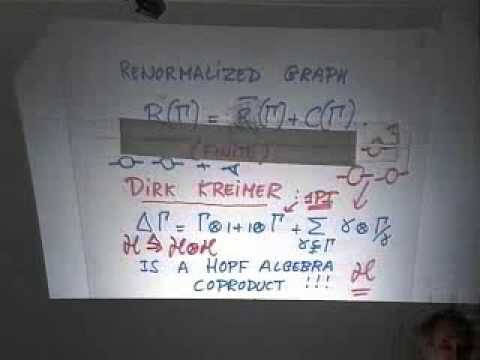 RENORMALIZED GRAPH
R(Γ) = R̅(Γ) + C(Γ).
(FINITE)
DIRK KREIMER : 1PI
ΔΓ = Γ⊗1 + 1⊗Γ + Σ γ⊗Γ/γ
γ⊊Γ
ℋ →Δ ℋ⊗ℋ
IS A HOPF ALGEBRA ℋ
COPRODUCT !!!